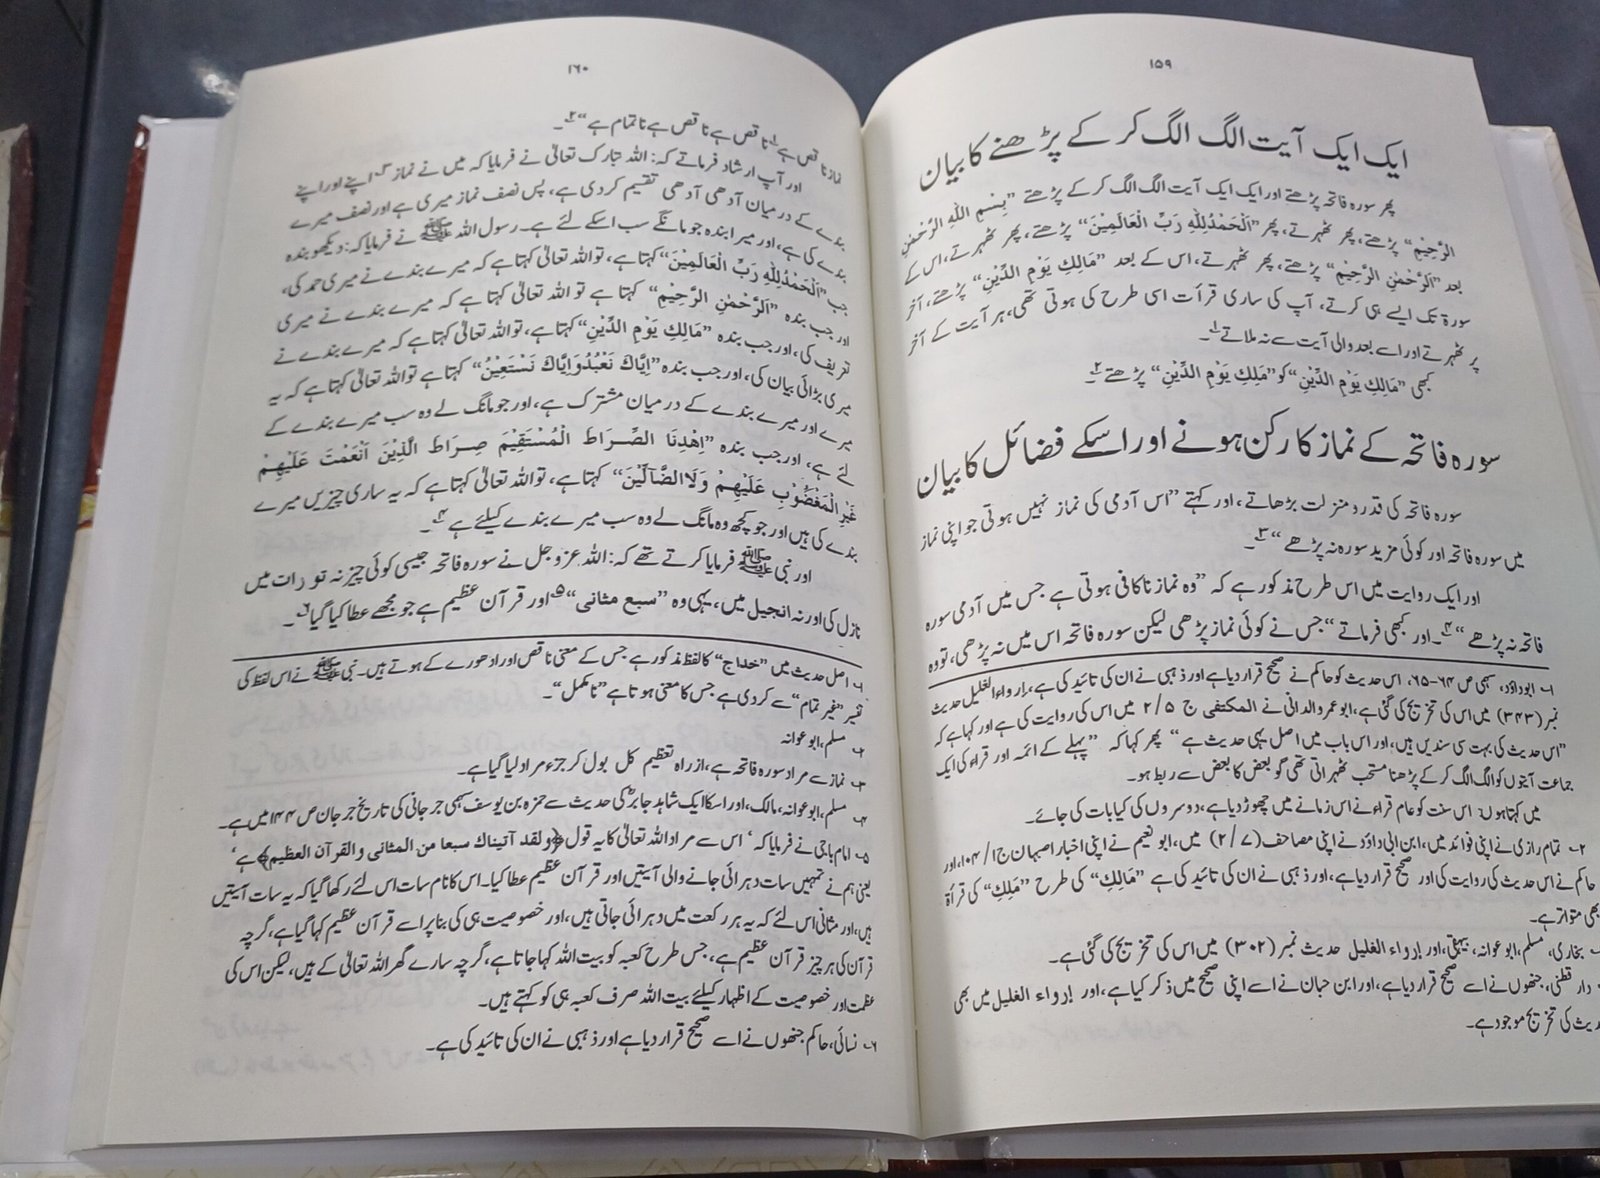 ۱۵۹
ایک ایک آیت الگ الگ کر کے پڑھنے کا بیان
پھر سورہ فاتحہ پڑھتے اور ایک ایک آیت الگ الگ کر کے پڑھتے ”بِسْمِ اللهِ الرَّحْمٰنِ
الرَّحِیْمِ“ پڑھتے، پھر ٹھہرتے، پھر ”اَلْحَمْدُلِلّٰهِ رَبِّ الْعَالَمِیْنَ“ پڑھتے، پھر ٹھہرتے، اس کے
بعد ”اَلرَّحْمٰنِ الرَّحِیْمِ“ پڑھتے، پھر ٹھہرتے، اس کے بعد ”مَالِكِ یَوْمِ الدِّیْنِ“ پڑھتے، آخر
سورۃ تک ایسے ہی کرتے، آپ کی ساری قرأت اسی طرح کی ہوتی تھی، ہر آیت کے آخر
پر ٹھہرتے اور اسے بعد والی آیت سے نہ ملاتے۱۔
کبھی ”مَالِكِ یَوْمِ الدِّیْنِ“ کو ”مَلِكِ یَوْمِ الدِّیْنِ“ پڑھتے۲۔
سورہ فاتحہ کے نماز کا رکن ہونے اور اسکے فضائل کا بیان
سورہ فاتحہ کی قدر و منزلت بڑھاتے، اور کہتے ”اس آدمی کی نماز نہیں ہوتی جو اپنی نماز
میں سورہ فاتحہ اور کوئی مزید سورہ نہ پڑھے“۳۔
اور ایک روایت میں اس طرح مذکور ہے کہ ”وہ نماز ناکافی ہوتی ہے جس میں آدمی سورہ
فاتحہ نہ پڑھے“۴۔ اور کبھی فرماتے ”جس نے کوئی نماز پڑھی لیکن سورہ فاتحہ اس میں نہ پڑھی، تو وہ
۱۔ ابوداؤد، سہمی ص ۶۴-۶۵، اس حدیث کو حاکم نے صحیح قرار دیا ہے اور ذہبی نے ان کی تائید کی ہے، اِرواء الغلیل حدیث
نمبر (۳۴۳) میں اس کی تخریج کی گئی ہے، ابوعمرو الدانی نے المکتفی ج ۵/ ۲ میں اس کی روایت کی ہے اور کہا ہے کہ
”اس حدیث کی بہت سی سندیں ہیں، اور اس باب میں اصل یہی حدیث ہے“ پھر کہا کہ ”پہلے کے ائمہ اور قراء کی ایک
جماعت آیتوں کو الگ الگ کر کے پڑھنا مستحب ٹھہراتی تھی گو بعض کا بعض سے ربط ہو۔
میں کہتا ہوں: اس سنت کو عام قراء نے اس زمانے میں چھوڑ دیا ہے، دوسروں کی کیا بات کی جائے۔
۲۔ تمام رازی نے اپنی فوائد میں، ابن ابی داؤد نے اپنی مصاحف (۷/ ۲) میں، ابونعیم نے اپنی اخبار اصبہان ج ۱/ ۱۰۴، اور
حاکم نے اس حدیث کی روایت کی اور صحیح قرار دیا ہے، اور ذہبی نے ان کی تائید کی ہے ”مَالِكِ“ کی طرح ”مَلِكِ“ کی قرأۃ
بھی متواتر ہے۔
بخاری، مسلم، ابوعوانہ، بیہقی، اور اِرواء الغلیل حدیث نمبر (۳۰۲) میں اس کی تخریج کی گئی ہے۔
دار قطنی، جنھوں نے اسے صحیح قرار دیا ہے، اور ابن حبان نے اسے اپنی صحیح میں ذکر کیا ہے، اور اِرواء الغلیل میں بھی
حدیث کی تخریج موجود ہے۔
۱۶۰
نماز ناقص ہے۱ ناقص ہے ناقص ہے ناتمام ہے“۲۔
اور آپ ارشاد فرماتے کہ: اللہ تبارک تعالیٰ نے فرمایا کہ میں نے نماز۳ اپنے اور اپنے
بندے کے درمیان آدھی آدھی تقسیم کر دی ہے، پس نصف نماز میری ہے اور نصف میرے
بندے کی ہے، اور میرا بندہ جو مانگے سب اسکے لئے ہے۔ رسول اللہ ﷺ نے فرمایا کہ: دیکھو بندہ
جب ”اَلْحَمْدُلِلّٰهِ رَبِّ الْعَالَمِیْنَ“ کہتا ہے، تو اللہ تعالیٰ کہتا ہے کہ میرے بندے نے میری حمد کی،
اور جب بندہ ”اَلرَّحْمٰنِ الرَّحِیْمِ“ کہتا ہے تو اللہ تعالیٰ کہتا ہے کہ میرے بندے نے میری
تعریف کی، اور جب بندہ ”مَالِكِ یَوْمِ الدِّیْنِ“ کہتا ہے، تو اللہ تعالیٰ کہتا ہے کہ میرے بندے نے
میری بڑائی بیان کی، اور جب بندہ ”اِیَّاكَ نَعْبُدُوَاِیَّاكَ نَسْتَعِیْنُ“ کہتا ہے تو اللہ تعالیٰ کہتا ہے کہ یہ
میرے اور میرے بندے کے درمیان مشترک ہے، اور جو مانگ لے وہ سب میرے بندے کے
لئے ہے، اور جب بندہ ”اِهْدِنَا الصِّرَاطَ الْمُسْتَقِیْمَ صِرَاطَ الَّذِیْنَ اَنْعَمْتَ عَلَیْهِمْ
غَیْرِ الْمَغْضُوْبِ عَلَیْهِمْ وَلَاالضَّآلِّیْنَ“ کہتا ہے، تو اللہ تعالیٰ کہتا ہے کہ یہ ساری چیزیں میرے
بندے کی ہیں اور جو کچھ وہ مانگ لے وہ سب میرے بندے کیلئے ہے۴۔
اور نبی ﷺ فرمایا کرتے تھے کہ: اللہ عزوجل نے سورہ فاتحہ جیسی کوئی چیز نہ تو رات میں
نازل کی اور نہ انجیل میں، یہی وہ ”سبع مثانی“۵ اور قرآن عظیم ہے جو مجھے عطا کیا گیا۶۔
۱۔ اصل حدیث میں ”خداج“ کا لفظ مذکور ہے جس کے معنی ناقص اور ادھورے کے ہوتے ہیں۔ نبی ﷺ نے اس لفظ کی
تفسیر ”غیر تمام“ سے کر دی ہے جس کا معنی ہوتا ہے ”نامکمل“۔
۲۔ مسلم، ابوعوانہ
۳۔ نماز سے مراد سورہ فاتحہ ہے، از راہ تعظیم کل بول کر جزء مراد لیا گیا ہے۔
۴۔ مسلم، ابوعوانہ، مالک، اور اسکا ایک شاہد جابرؓ کی حدیث سے حمزہ بن یوسف سہمی جرجانی کی تاریخ جرجان ص ۱۴۴ میں ہے۔
۵۔ امام باجی نے فرمایا کہ ’اس سے مراد اللہ تعالیٰ کا یہ قول ﴿ولقد آتیناك سبعا من المثانی والقرآن العظیم﴾ ہے‘
یعنی ہم نے تمہیں سات دہرائی جانے والی آیتیں اور قرآن عظیم عطا کیا۔ اس کا نام سات اس لئے رکھا گیا کہ یہ سات آیتیں
ہیں، اور مثانی اس لئے کہ یہ ہر رکعت میں دہرائی جاتی ہیں، اور خصوصیت ہی کی بنا پر اسے قرآن عظیم کہا گیا ہے، گرچہ
قرآن کی ہر چیز قرآن عظیم ہے، جس طرح کعبہ کو بیت اللہ کہا جاتا ہے، گرچہ سارے گھر اللہ تعالیٰ کے ہیں، لیکن اس کی
عظمت اور خصوصیت کے اظہار کیلئے بیت اللہ صرف کعبہ ہی کو کہتے ہیں۔
۶۔ نسائی، حاکم جنھوں نے اسے صحیح قرار دیا ہے اور ذہبی نے ان کی تائید کی ہے۔